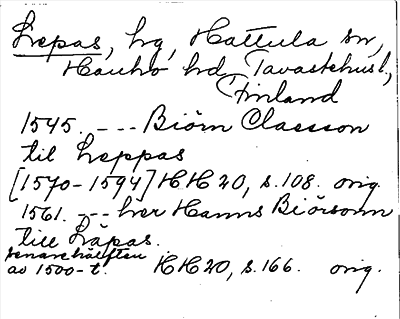 Lepas, hg, Hattula sn,
Hauho hd, Tavastehus l.,
Finland
1545. --- Biörn Claesson
til Leppas
[1570-1594] HH 20, s. 108. orig.
1561. --- her Hanns Biörsonn
till Läpas.
senare hälften
av 1500-t. HH 20, s. 166. orig.